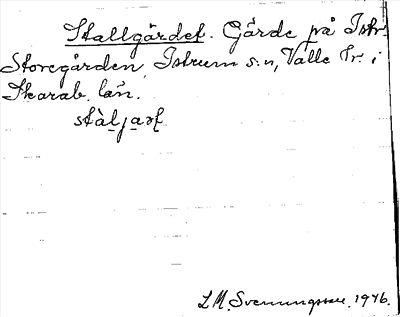 Stallgärdet. Gärde på Istr.
Storegården, Istrum s:n, Valle hr. i
Skarab. län.
stàl̠ja̠ɹt̠
L M. Svenungsson. 1946.